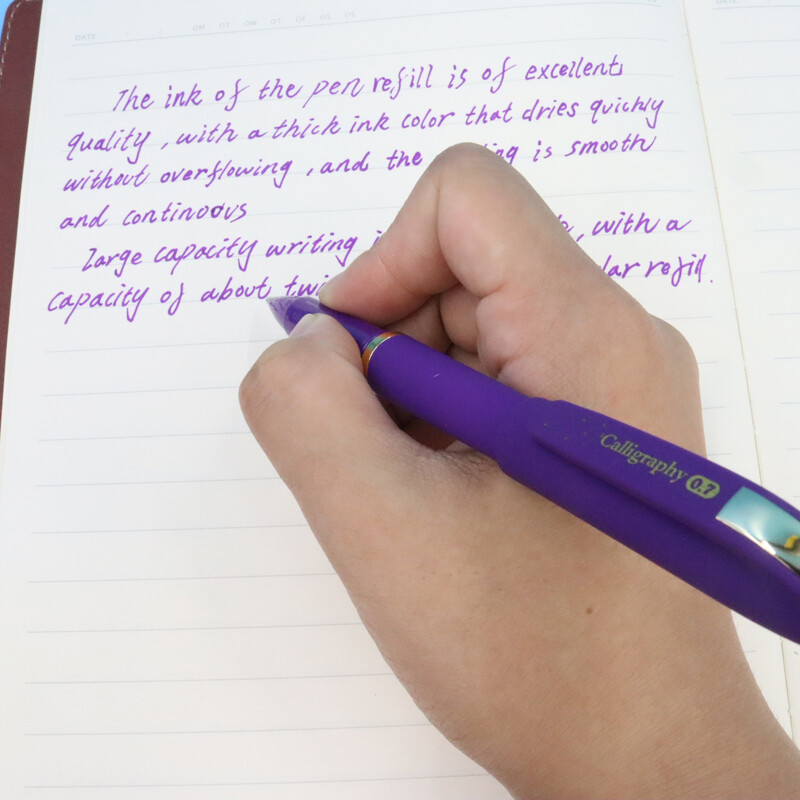 DATE
The ink of the pen refill is of excellent
quality, with a thick ink color that dries quickly
without overflowing, and the is smooth
and continuous
large capacity writing with a
capacity of about refill.
Calligraphy 0.7